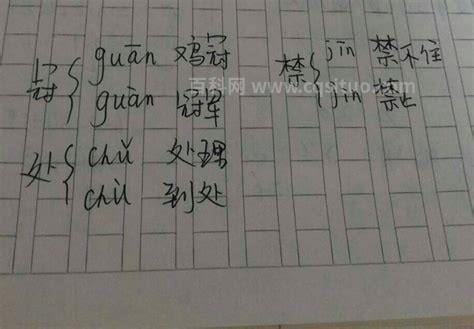 冠 guān 鸡冠
guàn 冠军
处 chǔ 处理
chù 到处
禁 jīn 禁不住
jìn 禁止
百科网 www.cqsituo.com